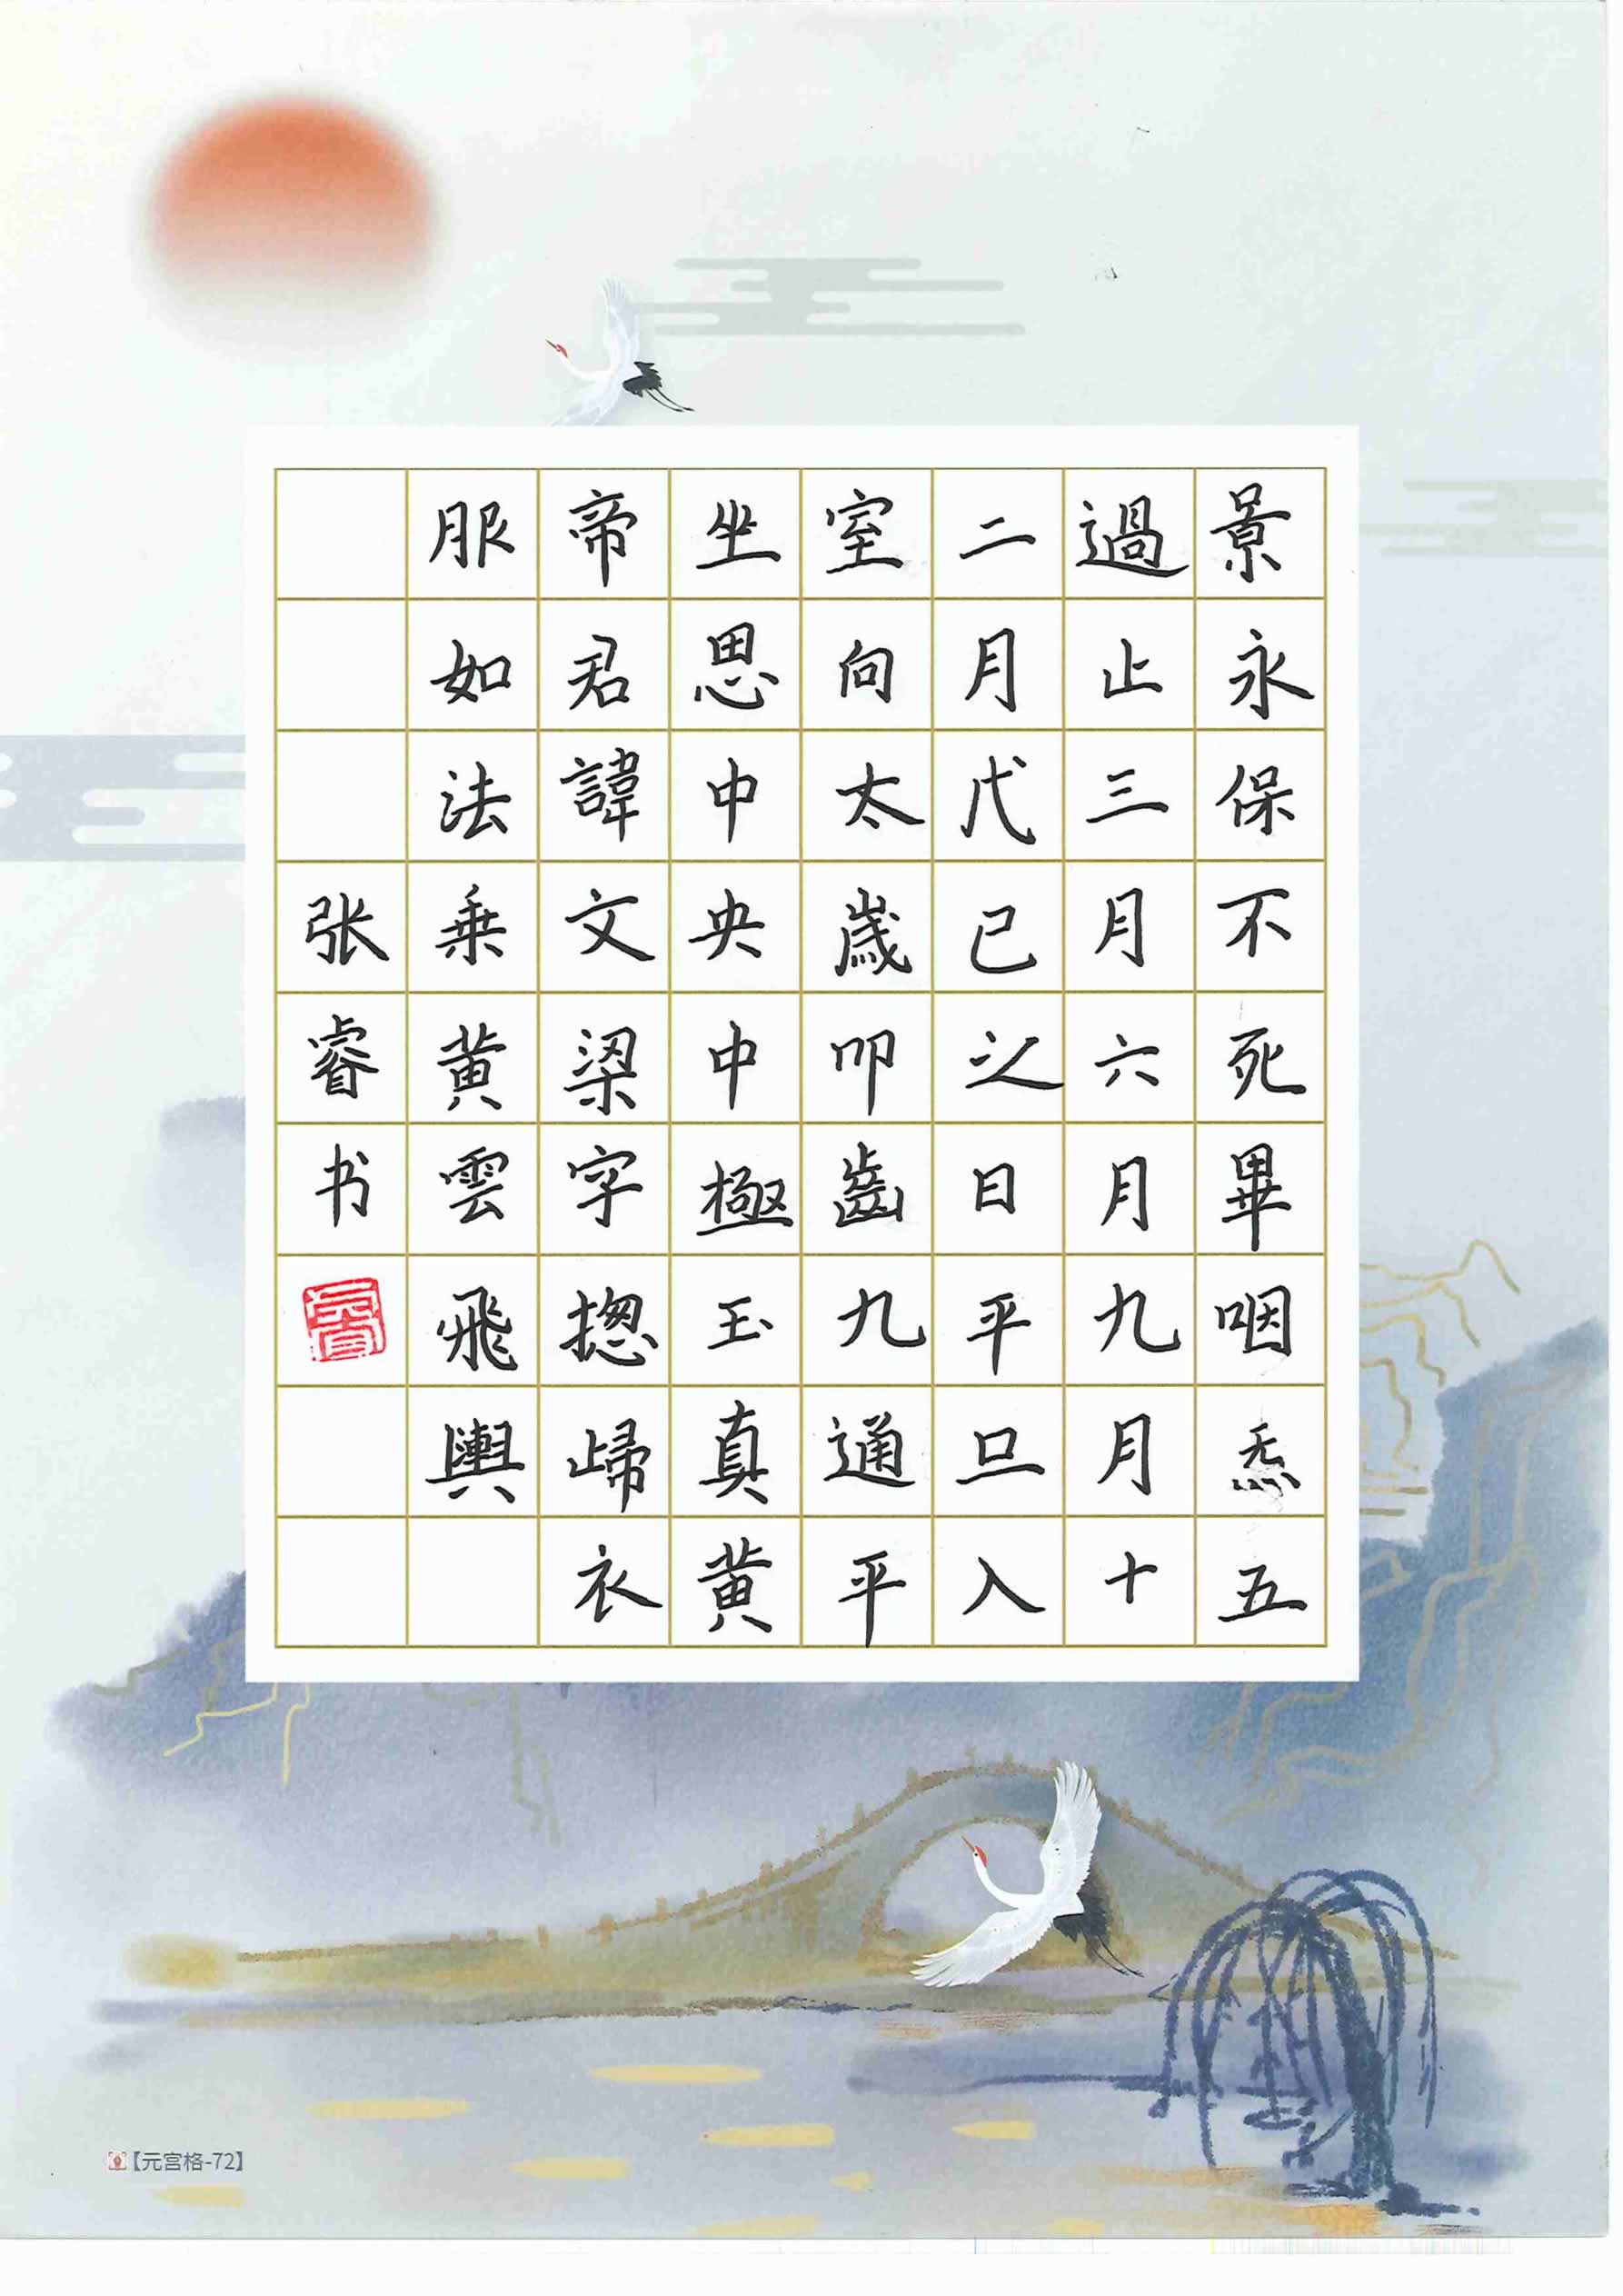 景永保不死畢咽炁五
過止三月六月九月十
二月戊己之日平旦入
室向太歲叩齒九通平
坐思中央中極玉真黃
帝君諱文梁字揔歸衣
服如法乗黃雲飛輿
张睿书
【元宫格-72】